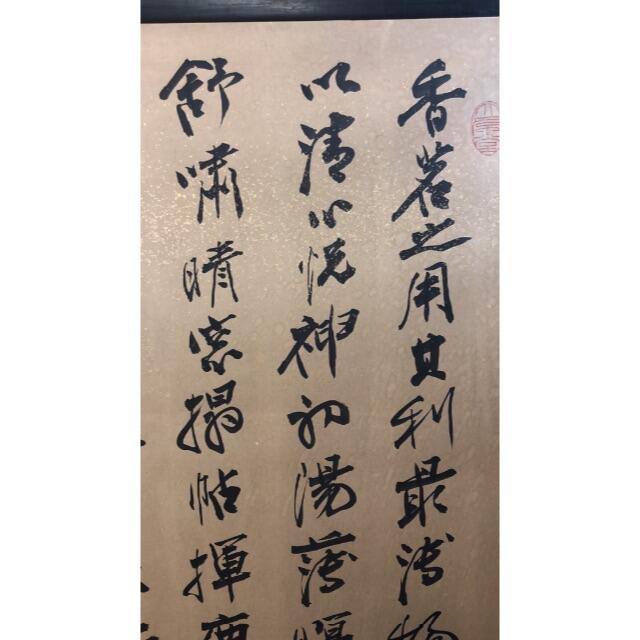 香茗之用其利最溥物
以清心悅神初陽薄暝
舒嘯晴窓搨帖揮麈